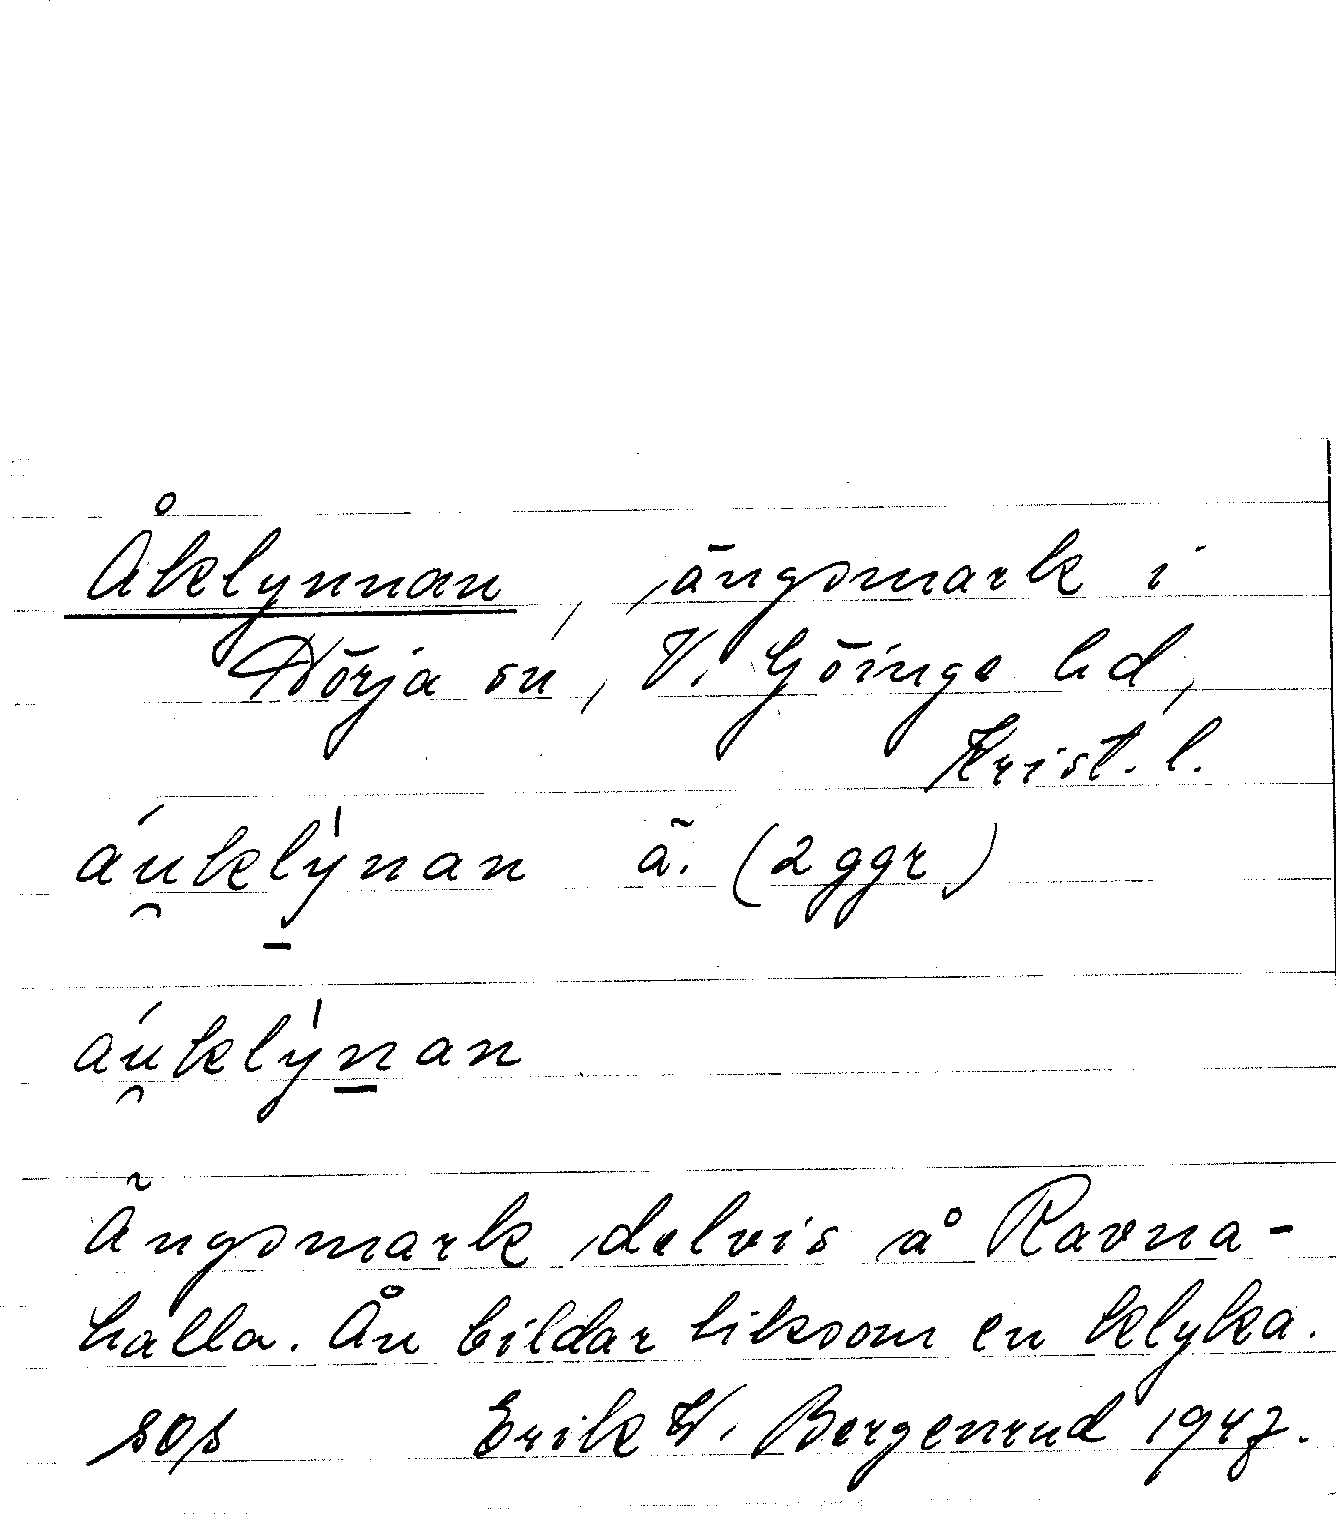 Åklynnan, ängsmark i
Nörja sn, V. Göinge hd,
Krist. l.
áu̯klýnan ä. (2 ggr)
áu̯klýn̲an
Ängsmark delvis å Ravna-
halla. Ån bildar liksom en klyka.
sops Erik W. Bergenrud 1947.